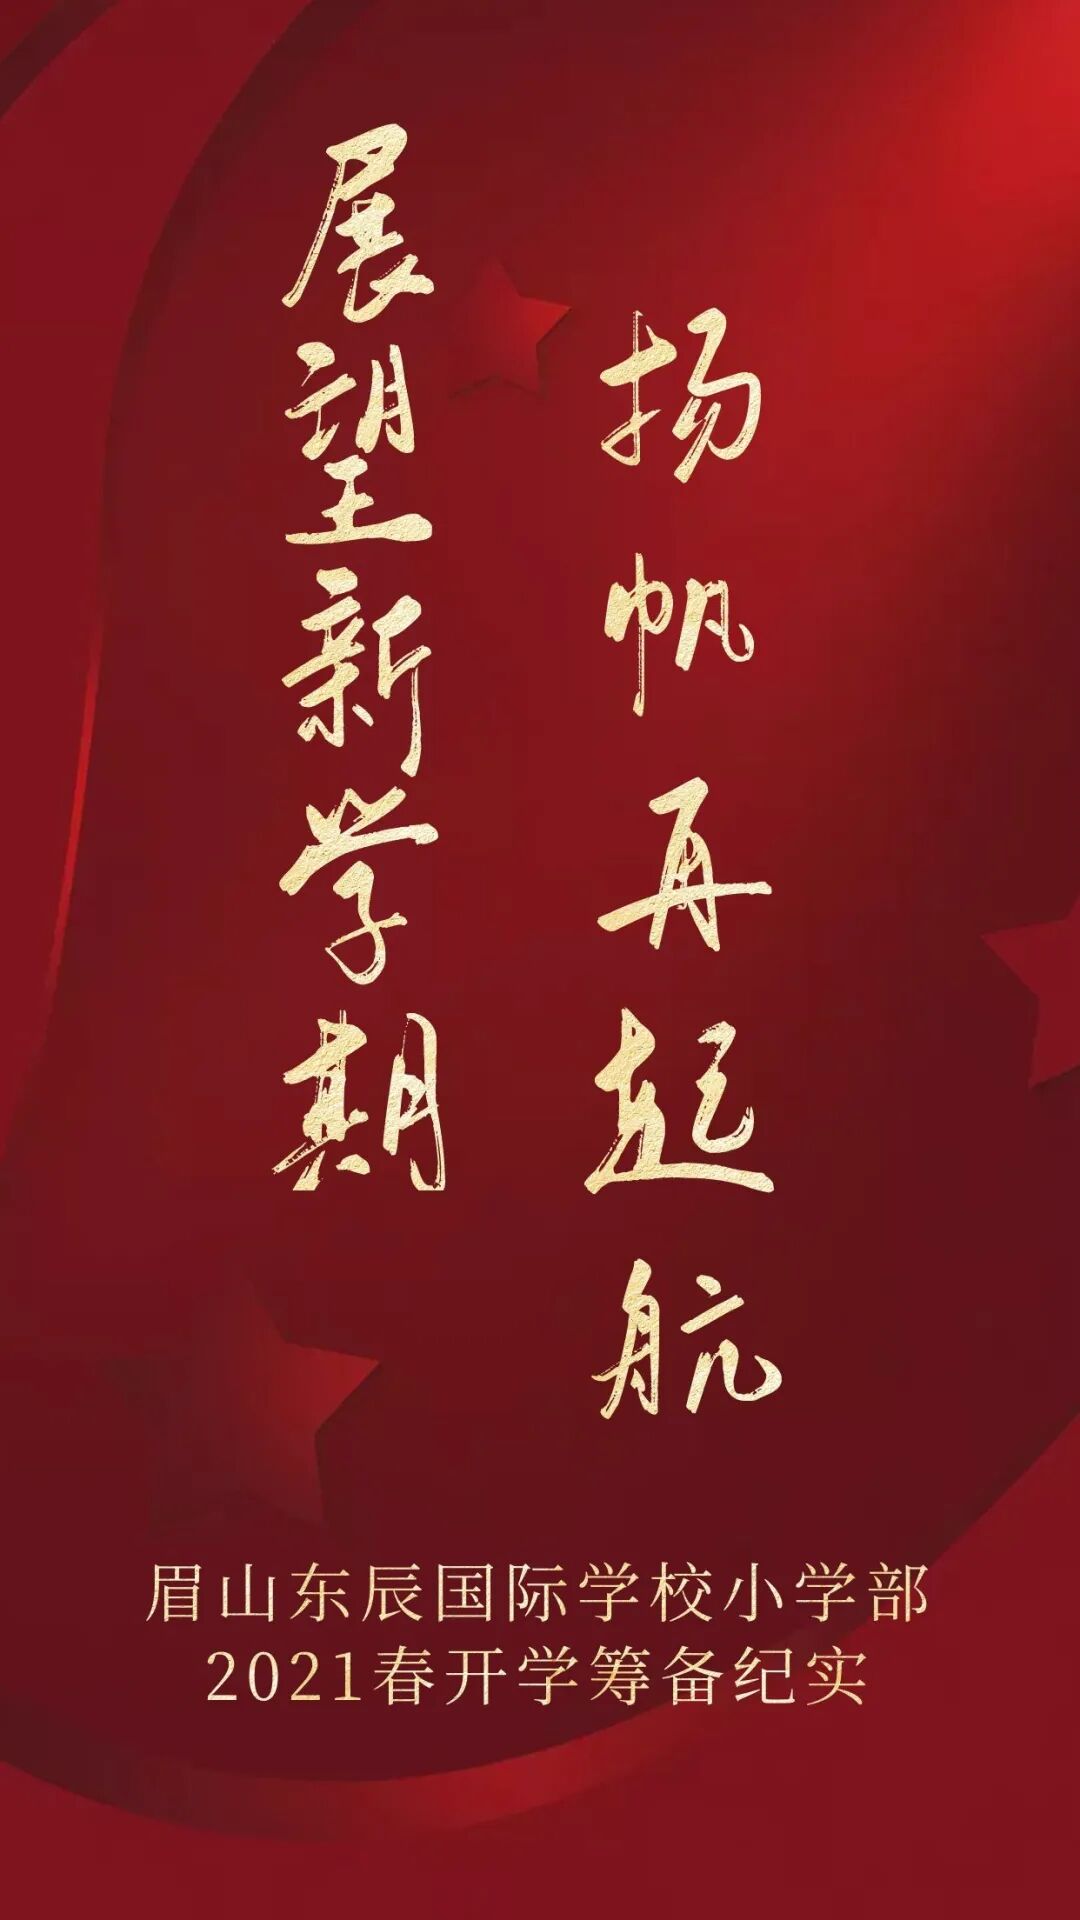 展望新学期
扬帆再起航
眉山东辰国际学校小学部
2021春开学筹备纪实